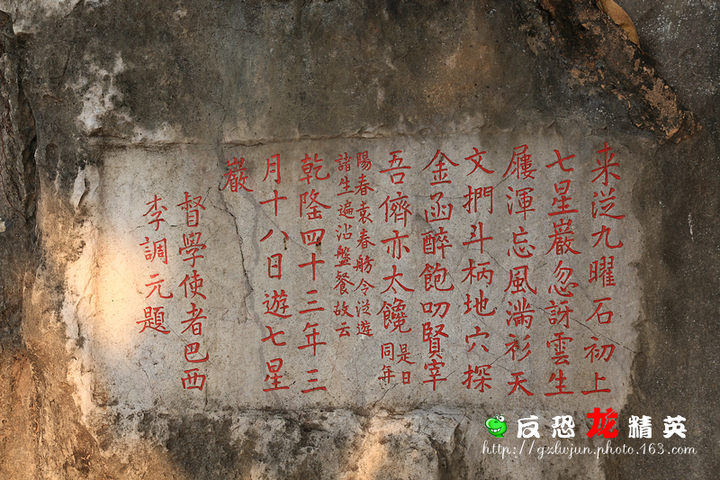 来泛九曜石初上
七星巖忽訝雲生
屨渾忘風滿衫天
文捫斗柄地穴探
金函醉飽叨賢宰
吾儕亦太饞是日同年
陽春袁春舫令泛遊
諸生遍沾盤餐故云
乾隆四十三年三
月十八日遊七星
巖
督學使者巴西
李調元題
反恐龙精英
http://gzlwjun.photo.163.com/